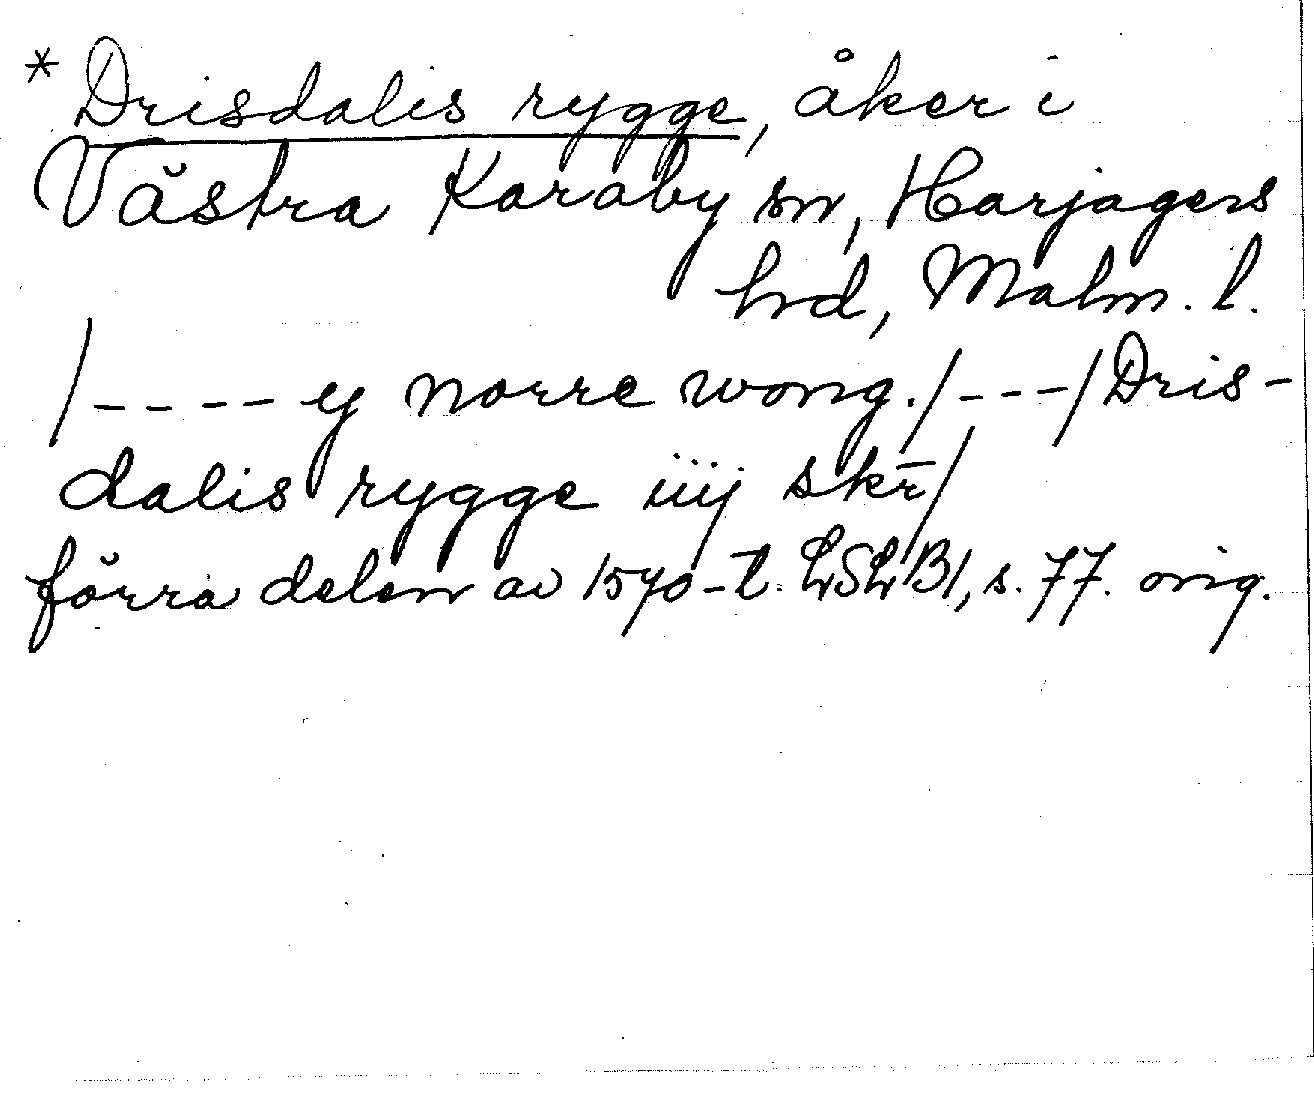 * Drisdalis rygge, åker i
Västra Karaby sn, Harjagers
hrd, Malm. l.
/---- ey norre wong./---/Dris-
dalis rygge iiij skr̄/
förra delen av 1570-t. LSLB1, s. 77. orig.